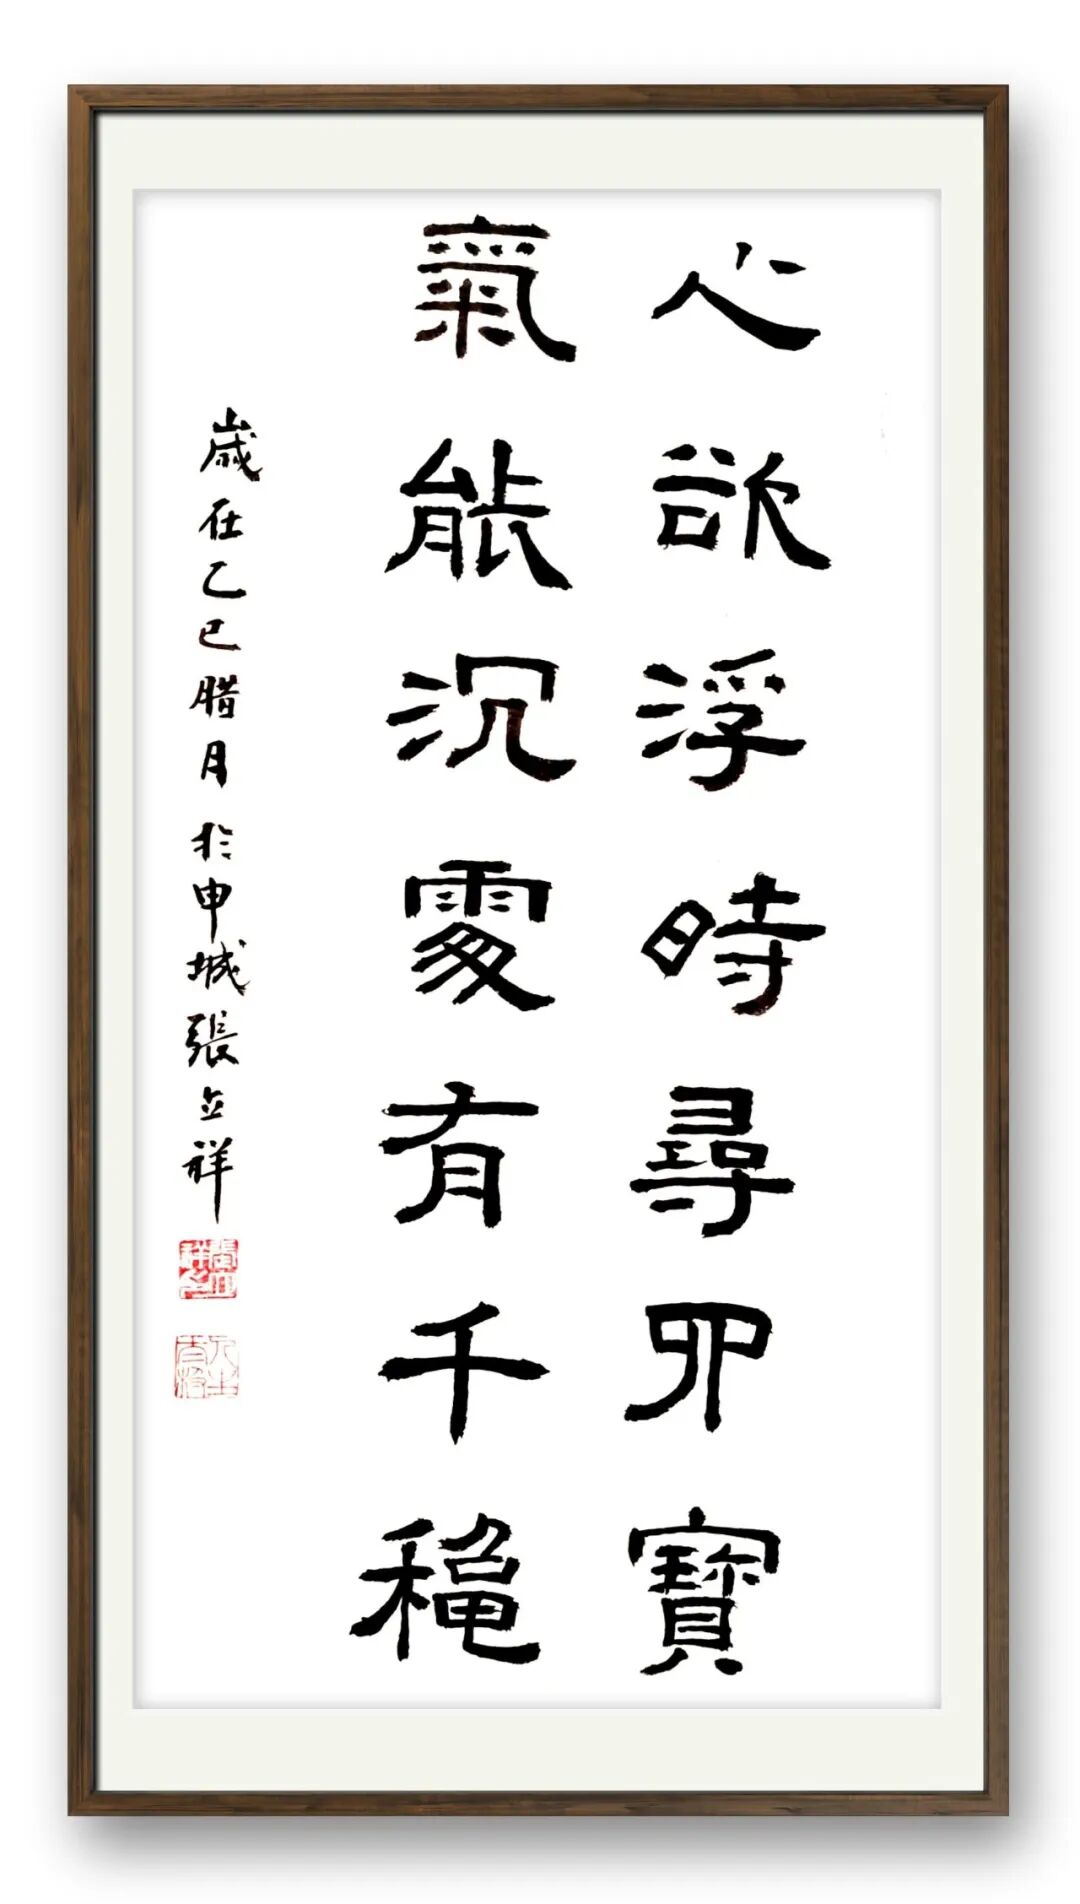 心欲浮時尋卯寶
氣能沉處有千穐
歲在乙巳腊月於申城張立祥